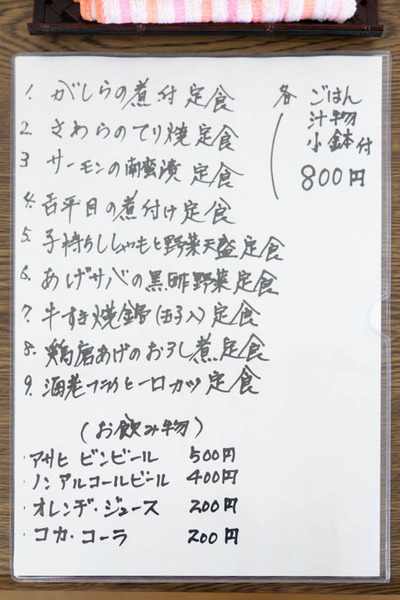 1. がしらの煮付定食
2. さわらのてり焼定食
3 サーモンの南蛮漬定食
4. 吉平目の煮付け定食
5. 子持ちししゃもと野菜天盛定食
6. あげサバの黒酢野菜定食
7. 牛すき焼鍋(玉子入)定食
8. 鶏唐あげのおろし煮定食
9. 海老フライとヒーロカツ定食
各 ごはん
汁物
小鉢付
800円
(お飲み物)
・アサヒ ビンビール 500円
・ノンアルコールビール 400円
・オレンヂ・ジュース 200円
・コカ・コーラ 200円